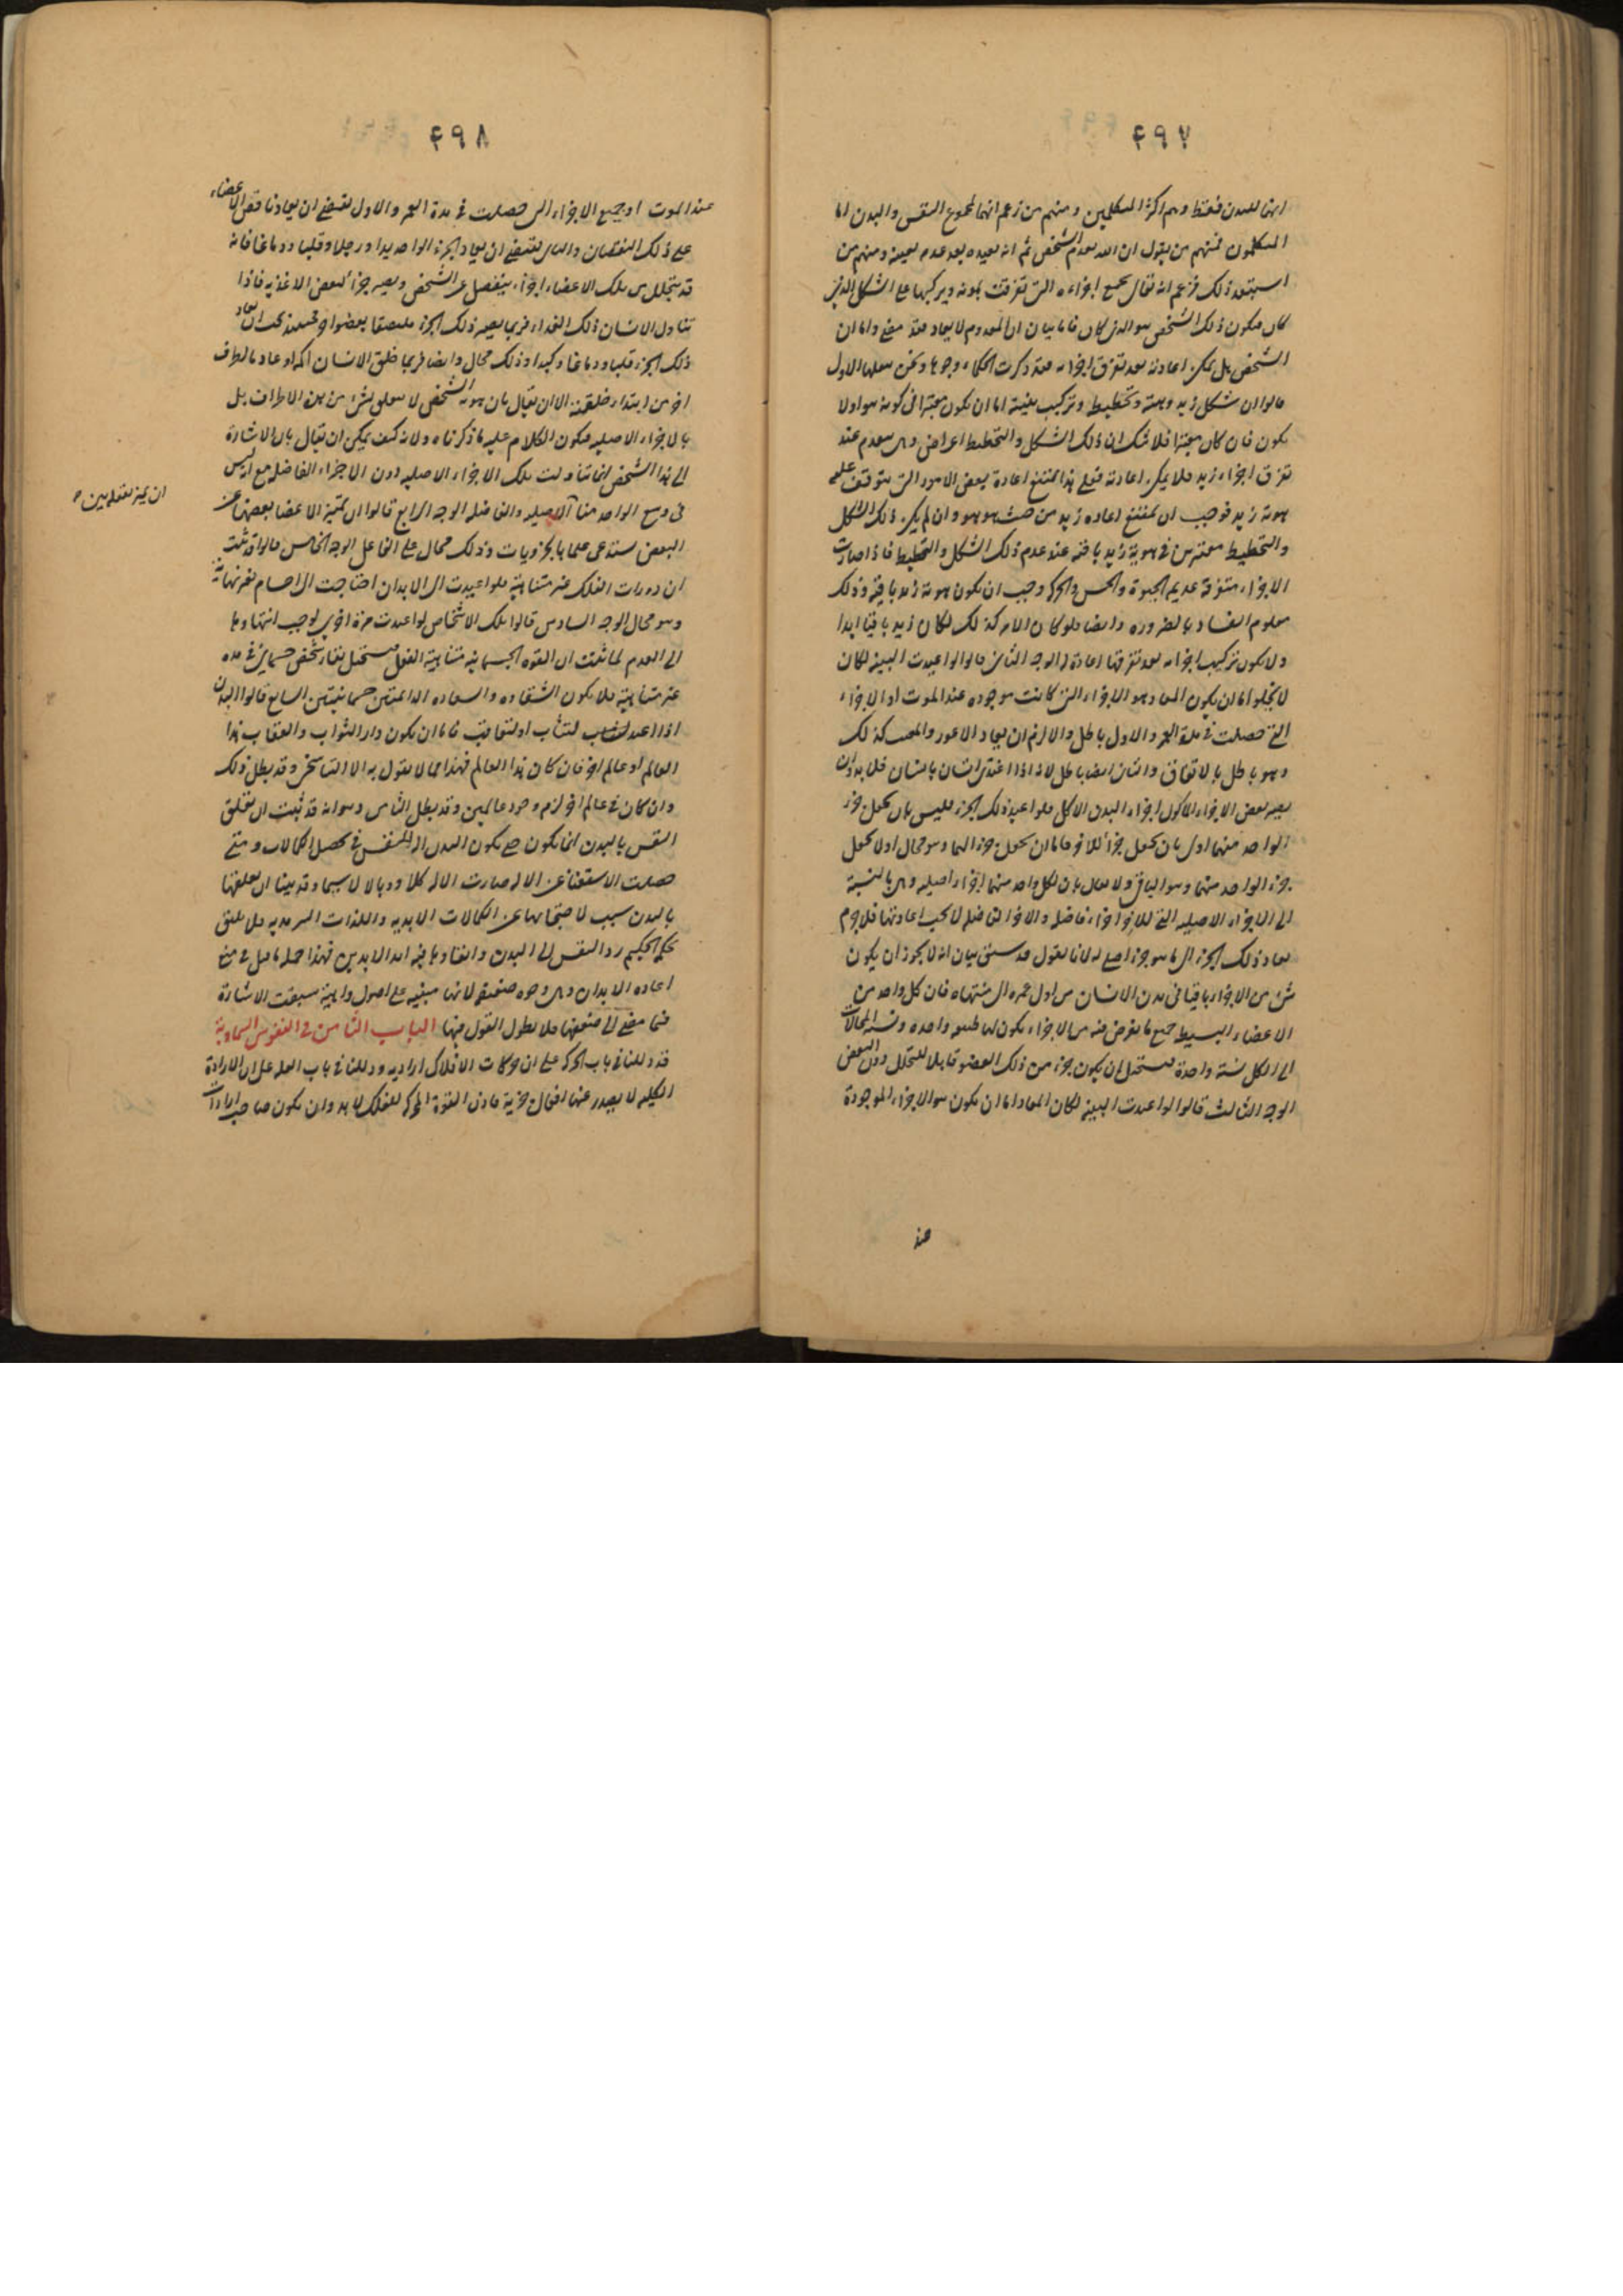 ۴۹۷
انها للبدن فقط وهم اكثر المتكلمين ومنهم من زعم انها لمجموع النفس والبدن اما
المتكلمون فمنهم من يقول ان الله يعدم الشخص ثم انه يعيده بعد عدمه بعينه ومنهم من
استبعد ذلك فزعم انه تعالى يجمع اجزاءه التى تفرقت بموته ويركبها على الشكل الذى
كان فيكون ذلك الشخص هو الذى كان فاما بيان ان المعدوم لا يعاد فقد مضى واما ان
الشخص هل يمكن اعادته بعد تفرق اجزائه فقد ذكرت الحكماء وجوها ونحن نعلمها الاول
قالوا ان شكل زيد وهيئته وتخطيط وتركيب بنيته اما ان يكون معتبرا فى كونه هو اولا
يكون فان كان معتبرا فلا شك ان ذلك الشكل والتخطيط اعراض وهى تنعدم عند
تفرق اجزاء زيد فلا يمكن اعادته فعلى هذا يمتنع اعادة بعض الامور التى يتوقف عليه
هوية زيد فوجب ان يمتنع اعاده زيد من حيث هو هو وان لم يكن ذلك الشكل
والتخطيط معتبرين فى هوية زيد باقيه عند عدم ذلك الشكل والتخطيط فاذا صارت
الاجزاء متفرقة عديم الحيوة والحس والحركه وجب ان يكون هوية زيد باقية وذلك
معلوم الفساد بالضروره وايضا فلو كان الامر كذلك لكان زيد باقيا ابدا
ولا يكون تركيب اجزائه بعد تفرقها اعادة له الوجه الثانى قالوا لو اعيدت البنيه لكان
لا يخلوا اما ان يكون المعاد هو الاجزاء التى كانت موجوده عند الموت او الاجزاء
التى حصلت فى مدة العمر والاول باطل والا لزم ان يعاد الاعور والمعيب كذلك
وهو باطل بالاتفاق والثانى ايضا باطل لانه اذا اغتذى انسان بانسان فلا بد وان
يصير بعض الاجزاء الماكول اجزاء البدن الاكل فلو اعيد ذلك الجزء فليس بان يجعل جزء
الواحد منهما اولى بان يجعل جزءا للاخر فاما ان يجعل جزءا لهما وهو محال او لا يجعل
جزء الواحد منهما وهو الباقى ولا يقال بان لكل واحد منهما اجزاء اصليه وهى بالنسبة
الى الاجزاء الاصليه التى للاخر اجزاء فاضله والاجزاء الفاضله لا يجب اعادتها فلا جرم
يعاد ذلك الجزء الى ما هو جزء اصلى له لانا نقول قد سبق بيان انه لا يجوز ان يكون
شئ من الاجزاء باقيا فى بدن الانسان من اول عمره الى منتهاه فان كل واحد من
الاعضاء البسيط جميع ما يفرض فيه من الاجزاء يكون لها طبيعه واحده ونسبة المحللات
الى الكل نسبة واحدة فيستحيل ان يكون جزء من ذلك العضو قابلا للتحلل دون البعض
الوجه الثالث قالوا لو اعيدت البنيه لكان المعاد اما ان يكون هو الاجزاء الموجودة
عند
۴۹۸
عند الموت او جميع الاجزاء التى حصلت فى مدة العمر والاول يقتضى ان يعاد ناقص الاعضاء
على ذلك النقصان والثانى يقتضى ان يعاد الجزء الواحد يدا ورجلا وقلبا ودماغا فانه
قد يتحلل من تلك الاعضاء اجزاء ينفصل عن الشخص ويصير جزءا لبعض الاغذيه فاذا
تناول الانسان ذلك الغذاء فربما يصير ذلك الجزء ملتصقا بعضو اخر فحينئذ يجب ان يعاد
ذلك الجزء قلبا ودماغا وكبدا وذلك محال وايضا فربما خلق الانسان اكمه او عادما لطرف
اخر من ابتداء خلقته الا ان يقال بان هويه الشخص لا يتعلق بشئ من هذه الاطراف بل
بالاجزاء الاصليه فيكون الكلام عليه ما ذكرناه ولانه كيف يمكن ان يقال بان الاشارة
الى هذا الشخص انما تناولت تلك الاجزاء الاصليه دون الاجزاء الفاضله مع ان ليس
فى وسع الواحد منا الاصليه والفاضله الوجه الرابع قالوا ان تمييز الاعضا بعضها عن
ان يميز بعقله بين ٥
البعض يستدعى علما بالجزويات وذلك محال على الفاعل الوجه الخامس قالوا قد ثبت
ان دورات الفلك غير متناهية فلو اعيدت الى الابدان احتاجت الى اجسام بغير نهاية
وهو محال الوجه السادس قالوا تلك الاشخاص لو اعيدت مرة اخرى لوجب انتهاؤها
الى العدم لما ثبت ان القوه الجسمانيه متناهية الفعل فيستحيل بقاء شخص جسمانى مده
غير متناهية فلا يكون الشقاوه والسعاده الدائمتين جسمانيتين السابع قالوا البدن
اذا اعيد لتثاب او لتعاقب فاما ان يكون دار الثواب والعقاب هذا
العالم او عالم اخر فان كان هذا العالم فهذا مما لا يقول به الا التناسخى وقد بطل ذلك
وان كان فى عالم اخر لزم وجود عالمين وقد بطل الثامن وهو انه قد ثبت ان تعلق
النفس بالبدن انما يكون حتى يكون البدن اله للنفس فى تحصيل الكمالات ومتى
حصلت الاستغناء عن الاله صارت الاله كلا ووبالا لا سيما وقد بينا ان تعلقها
بالبدن سبب لاحتجابها عن الكمالات الابديه واللذات السرمديه فلا يليق
بحكم الحكيم رد النفس الى البدن وابقاؤها فيه ابد الابدين فهذا جملة ما قيل فى منع
اعاده الابدان وهى وجوه ضعيفه لانها مبنيه على اصول واهية سبقت الاشارة
فيما مضى الى ضعفها فلا نطول القول فيها الباب الثامن فى النفوس السماوية
قد دللنا فى باب الحركه على ان حركات الافلاك اراديه ودللنا فى باب العله على ان الارادة
الكليه لا يصدر عنها افعال جزئية فاذن القوة المحركه للفلك لا بد وان يكون صاحب ارادات